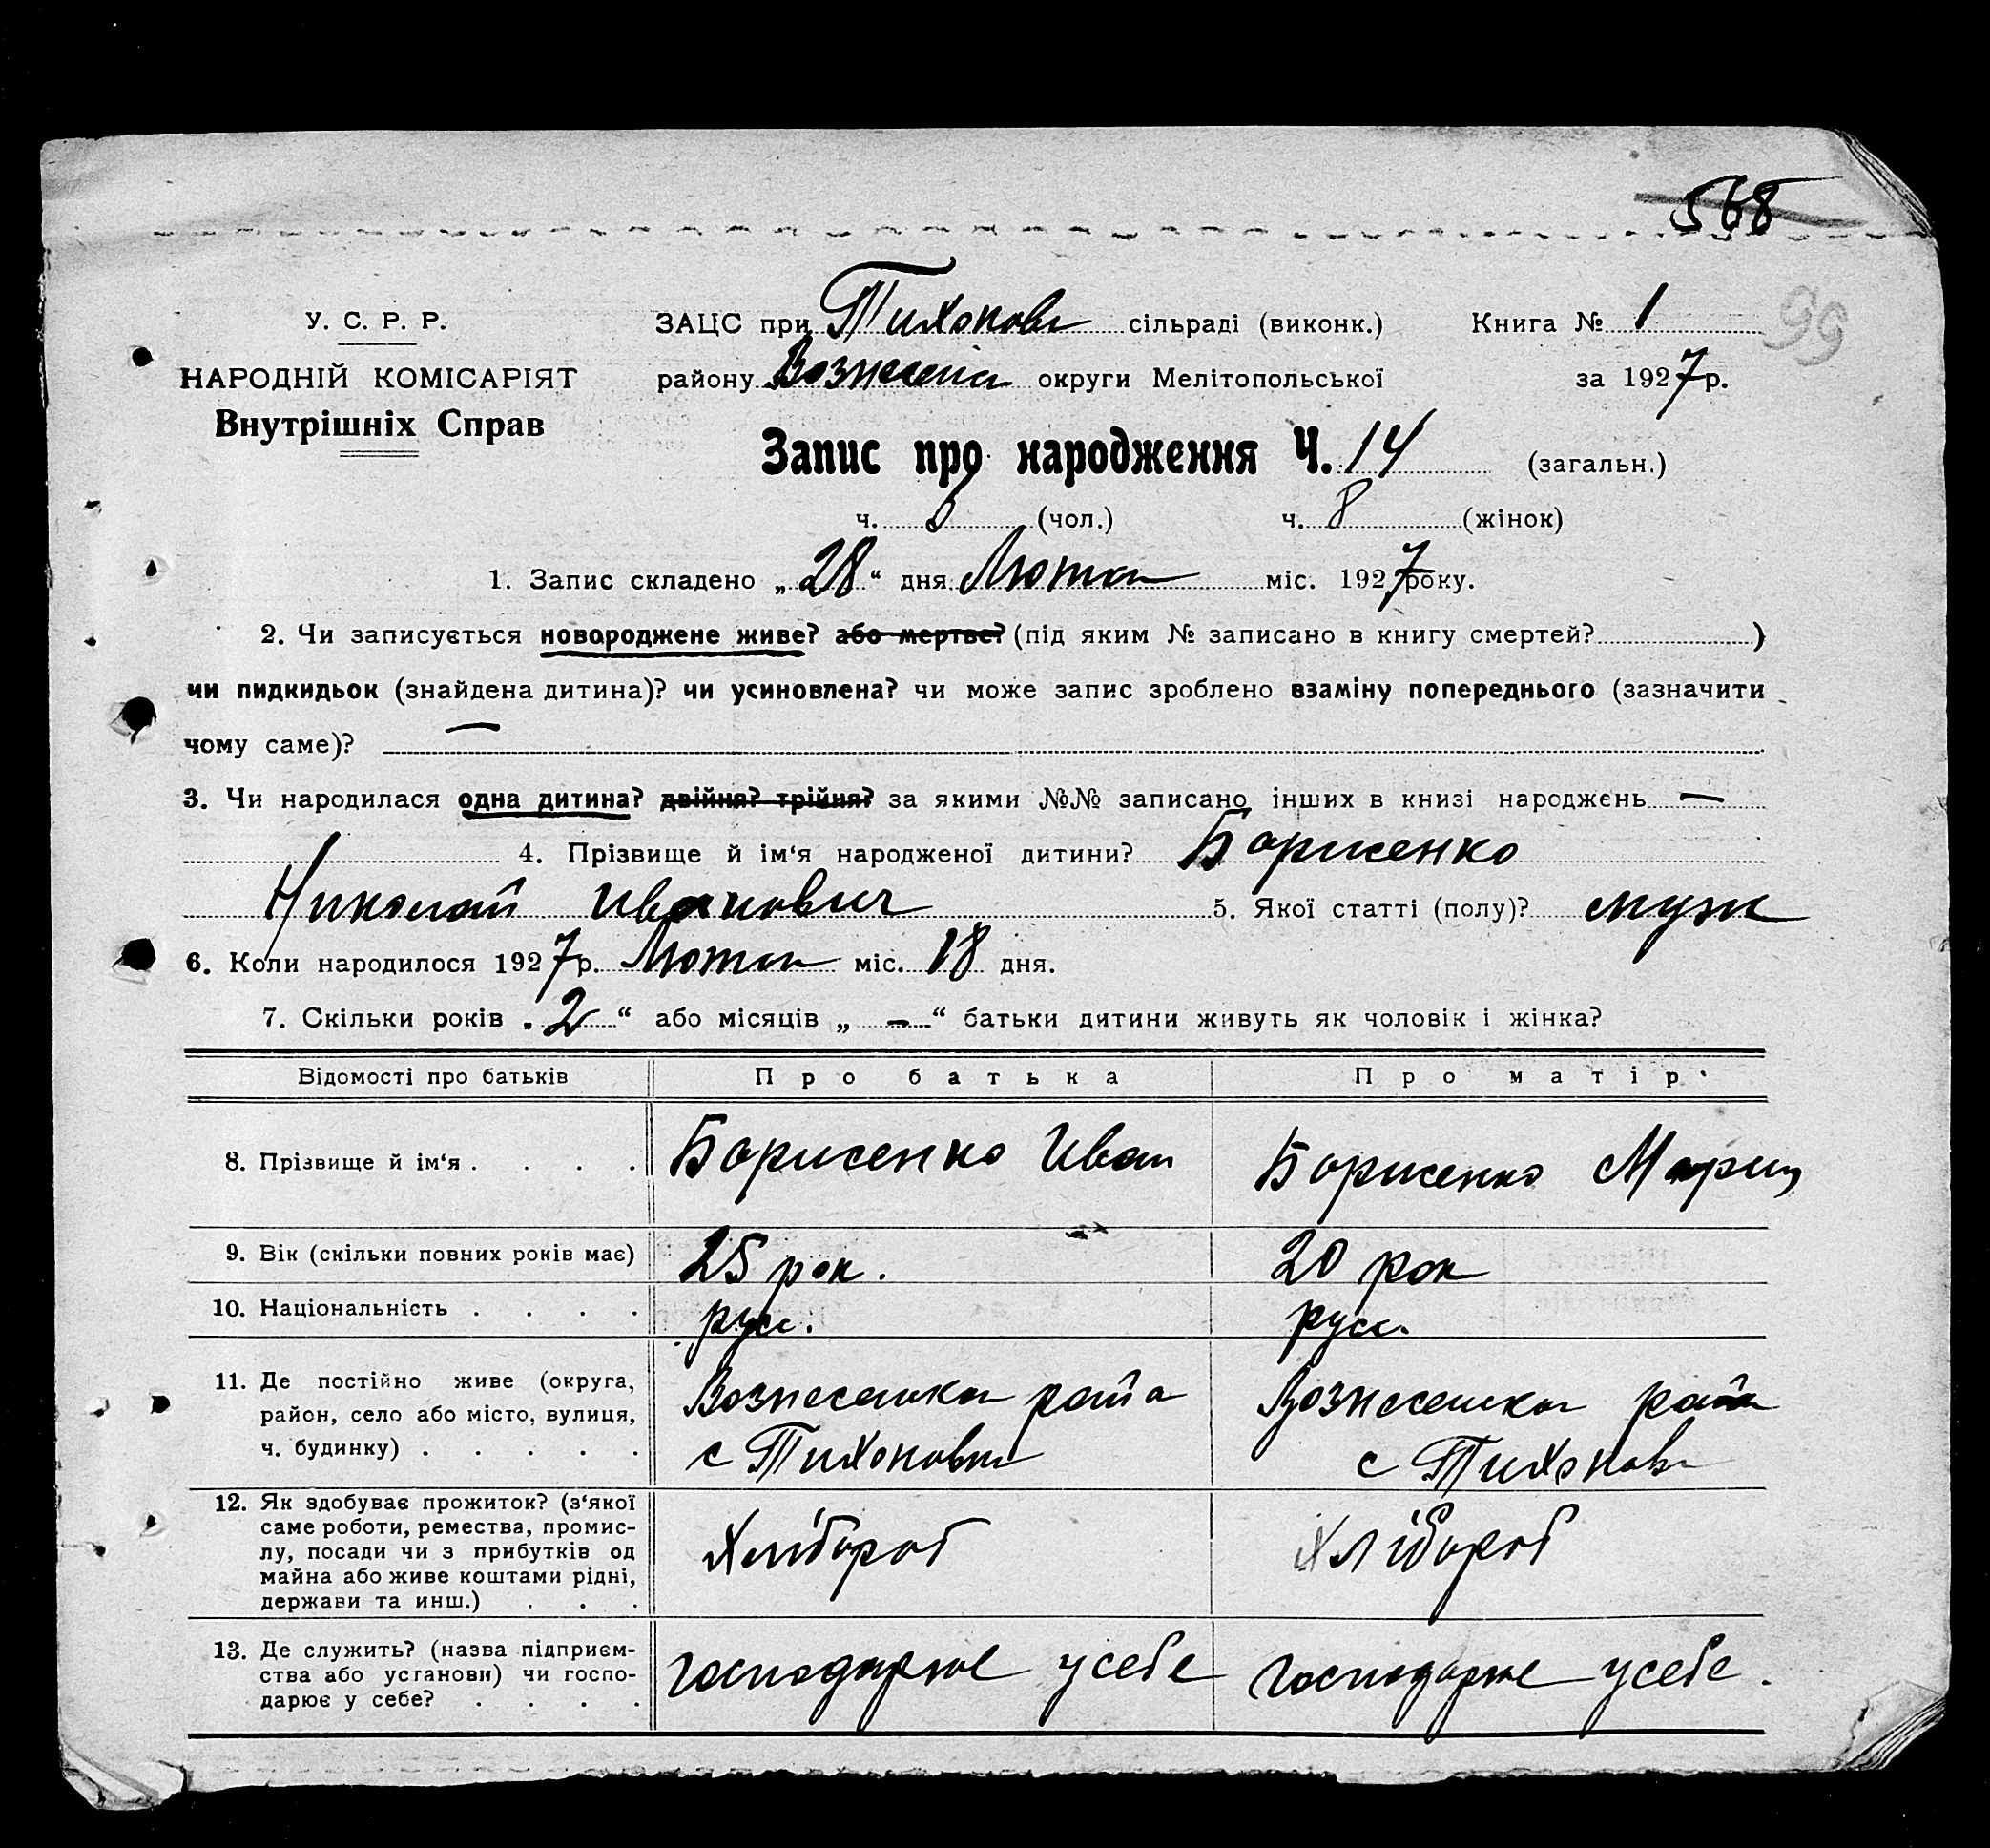 568
99
У. С. Р. Р.
НАРОДНІЙ КОМІСАРІЯТ
Внутрішніх Справ
ЗАЦС при Тихонов сільраді (виконк.) Книга № 1
району округи Мелітопольської за 1927 р.
Запис про народження Ч. 14 (загальн.)
ч. (чол.) ч. 8 (жінок)
1. Запис складено „28“ дня Лютого міс. 1927 року.
2. Чи записується новороджене живе? або мертве? (під яким № записано в книгу смертей? )
чи пидкидьок (знайдена дитина)? чи усиновлена? чи може запис зроблено взаміну попереднього (зазначити
чому саме)? —
3. Чи народилася одна дитина? двійня? трійня? за якими №№ записано інших в книзі народжень —
4. Прізвище й ім‘я народженої дитини? Борисенко
Николай Иванович 5. Якої статті (полу)? муж
6. Коли народилося 1927 р. Лютого міс. 18 дня.
7. Скільки років „2“ або місяців „ — “ батьки дитини живуть як чоловік і жінка?
Відомості про батьків Про батька Про матір
8. Прізвище й ім‘я . . . . Борисенко Иван Борисенко Мария
9. Вік (скільки повних років має) 25 рок. 20 рок
10. Національність . . . . русс. русс.
11. Де постійно живе (округа,
район, село або місто, вулиця,
ч. будинку) . . . . .
Вознесенка района
с Тихоновка
Вознесенка района
с Тихоновка
12. Як здобуває прожиток? (з‘якої
саме роботи, ремества, промис-
лу, посади чи з прибутків од
майна або живе коштами рідні,
держави та инш.) . . .
Хлібороб Хлібороб
13. Де служить? (назва підприєм-
ства або установи) чи госпо-
дарює у себе? . . . .
господарює у себе господарює у себе.